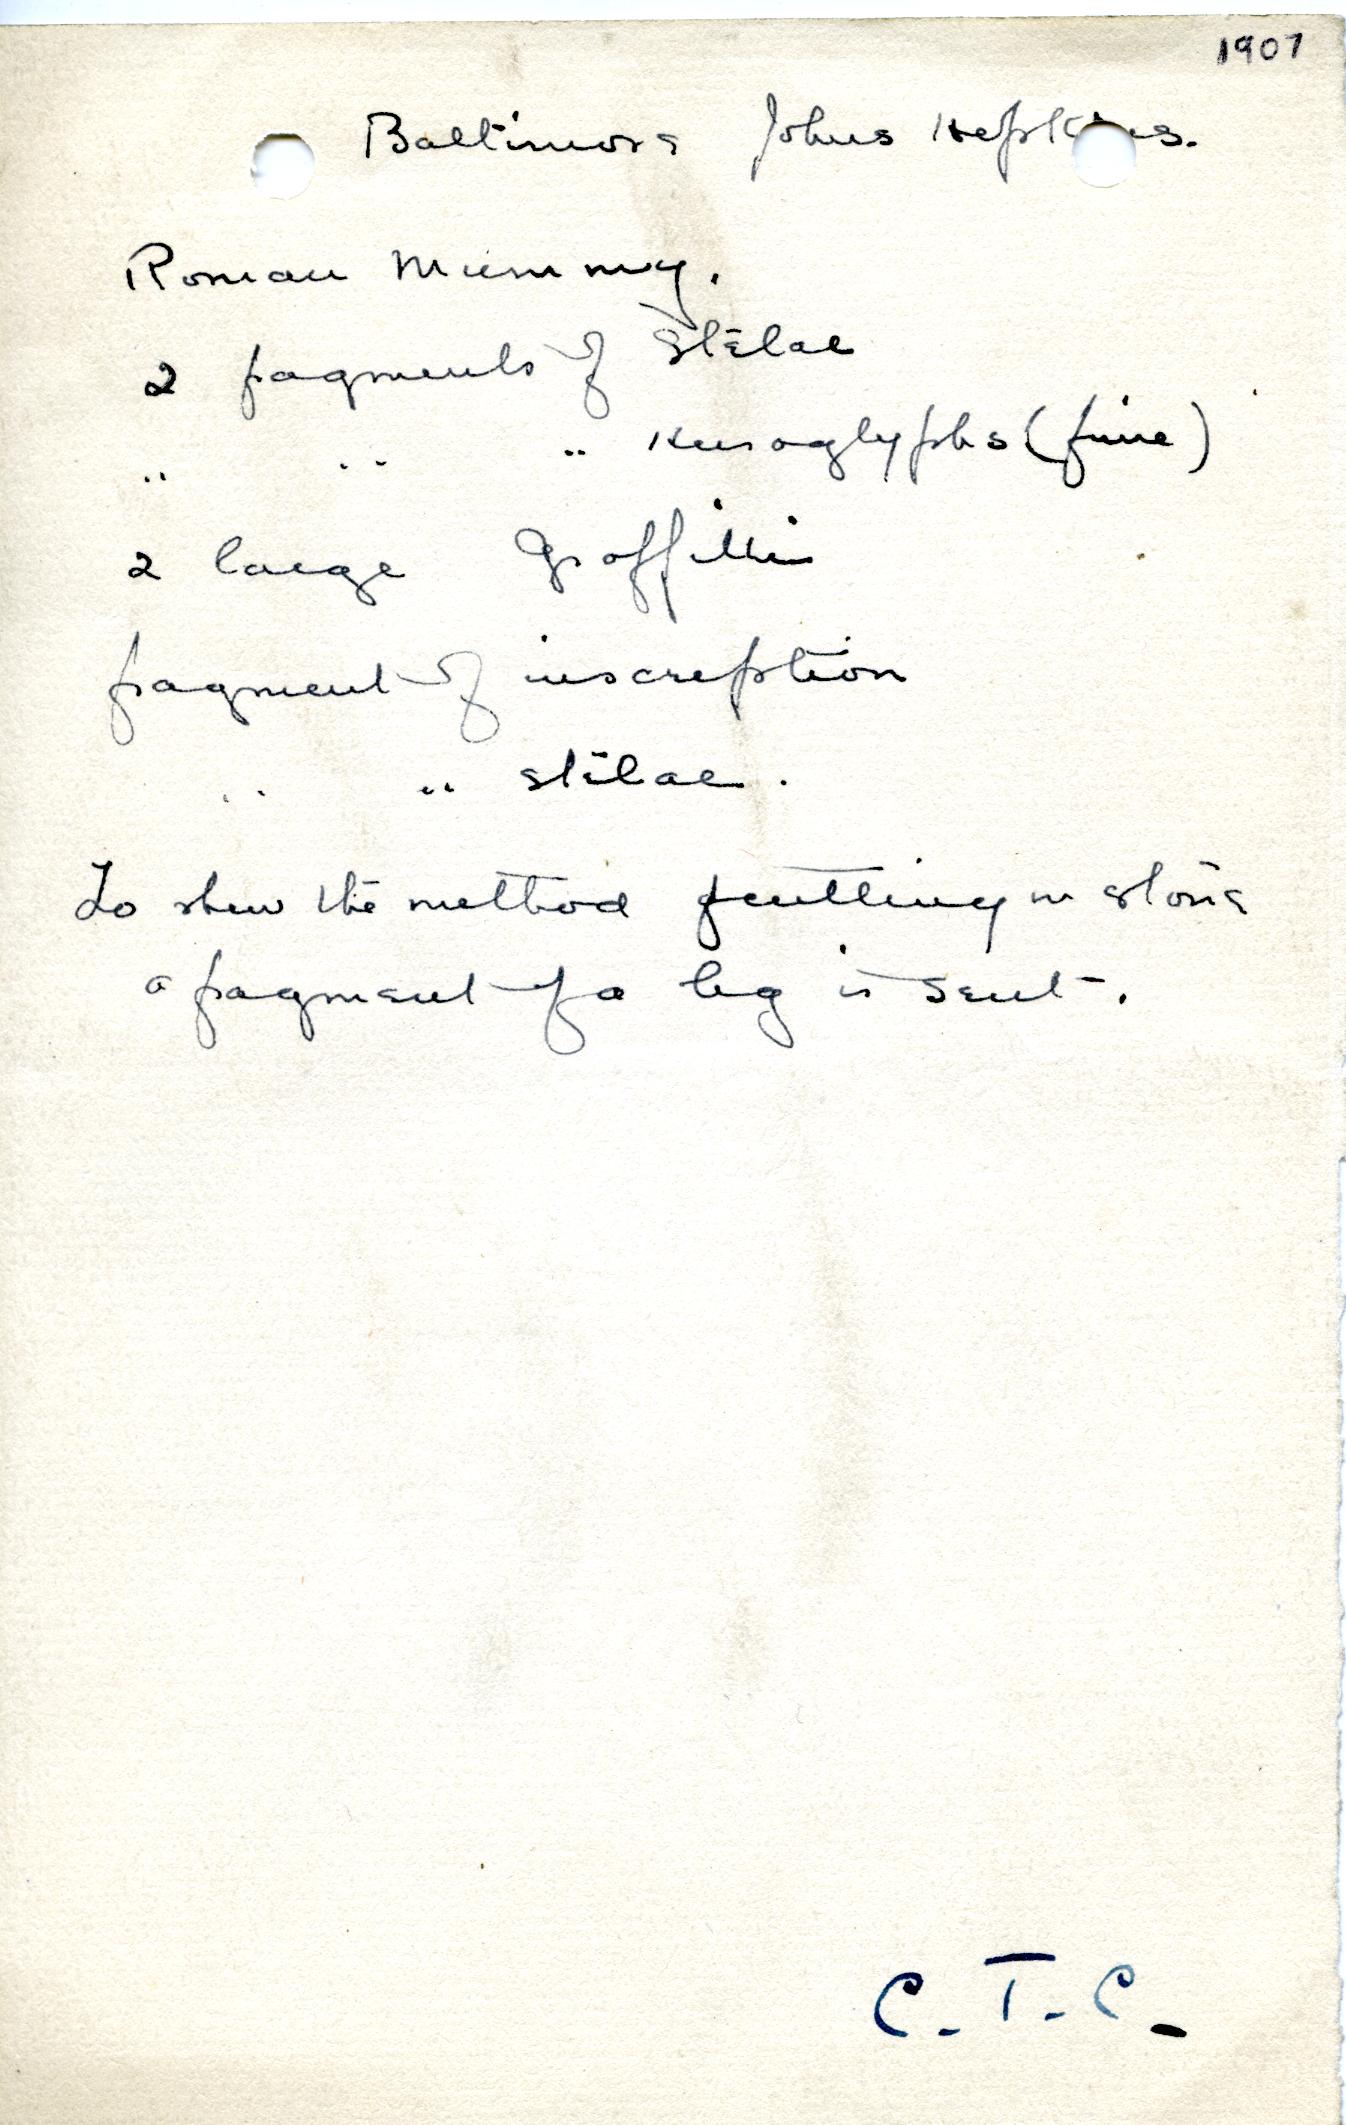 1907
Baltimore Johns Hopkins.
Roman Mummy.
2 fragments of Stelae
" " " Hieroglyphs (fine)
2 large Graffitti
fragment of inscription
" " stelae.
To shew the method of cutting in stone
a fragment of a leg is sent.
C.T.C.